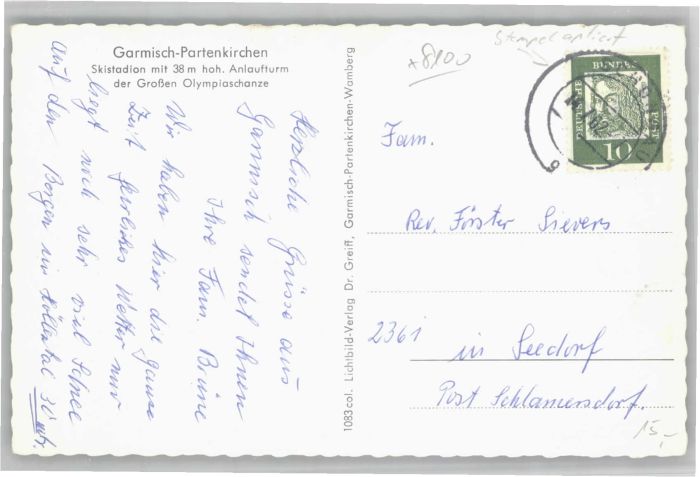 Garmisch-Partenkirchen
Skistadion mit 38 m hoh. Anlaufturm
der Großen Olympiaschanze
Herzliche Grüsse aus
Garmisch sendet Ihnen
Ihre Fam. Brüne
Wir haben hier die ganze
Zeit herrliches Wetter nur
liegt noch sehr viel Schnee
auf den Bergen im Höllental 30 mtr.
1083 col. Lichtbild-Verlag Dr. Greiff, Garmisch-Partenkirchen-Wamberg
+8100
Stempel
DEUTSCHE
BUNDES
POST
10
Fam.
Rev. Förster Sievers
2361 in Seedorf
Post Schlamersdorf.
15,-